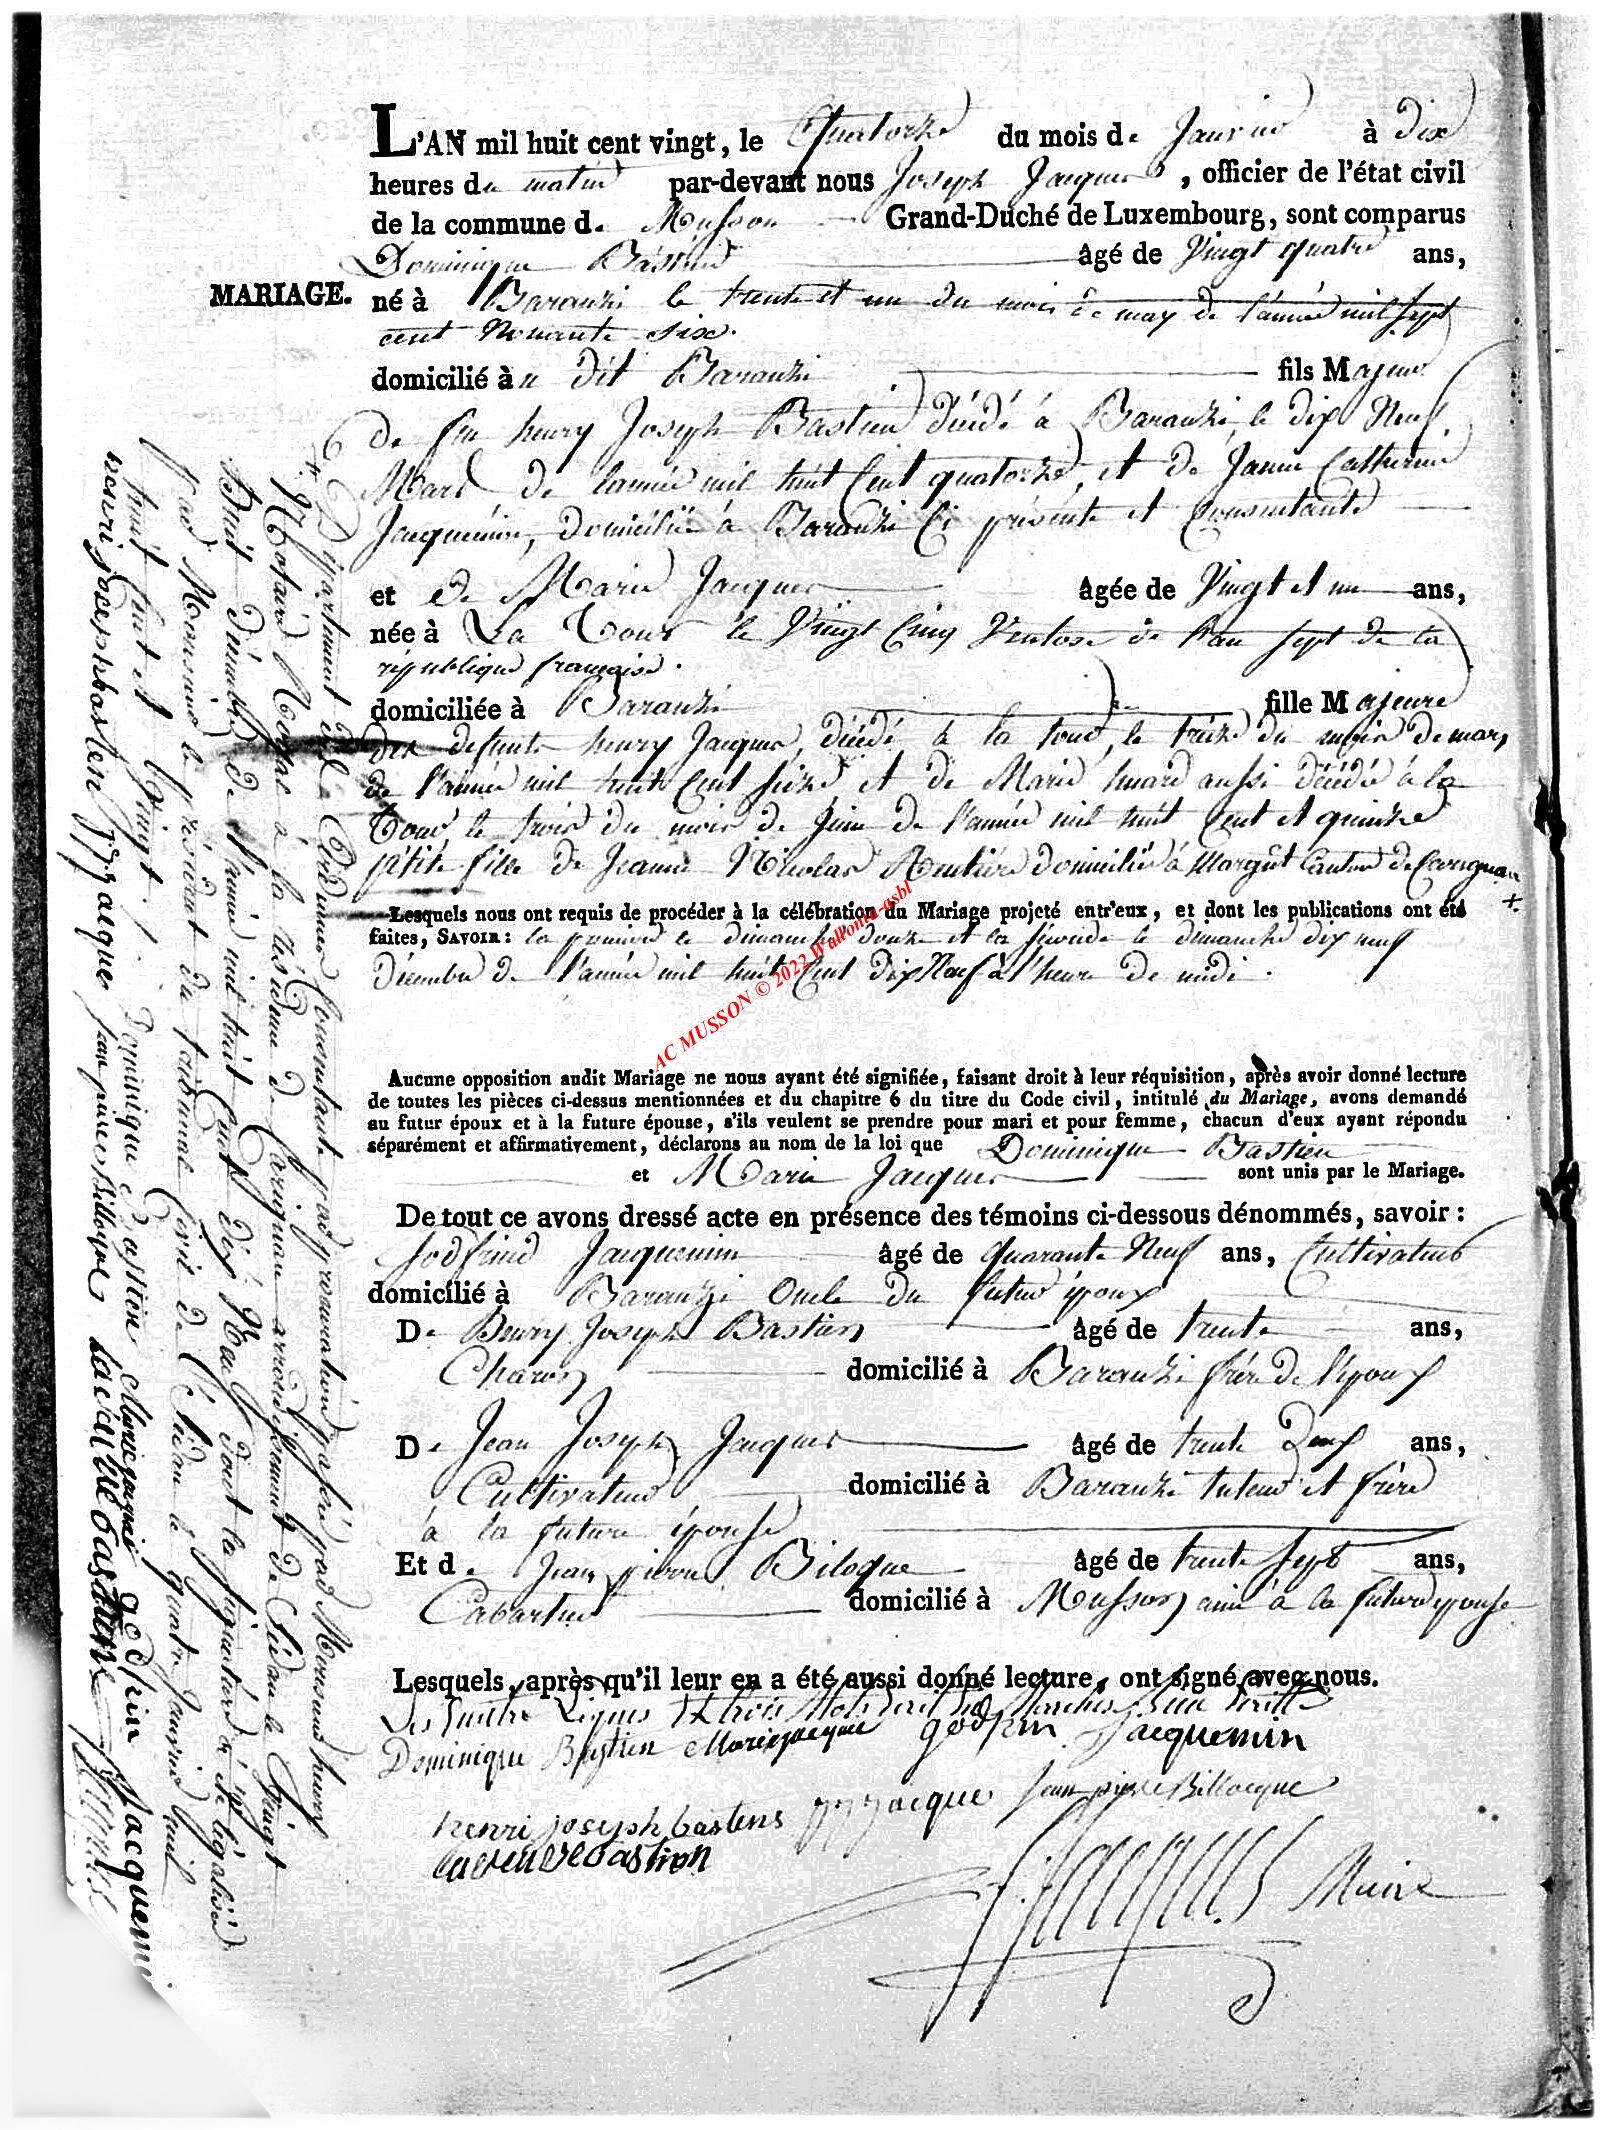 L'AN mil huit cent vingt, le Quatorze du mois de Janvier à dix
heures du matin par-devant nous Joseph Jacques, officier de l'état civil
de la commune de Musson Grand-Duché de Luxembourg, sont comparus
Dominique Bastien âgé de Vingt quatre ans,
MARIAGE. né à Baranzi le trente et un du mois de may de l'année mil sept
cent Nonante Six.
domicilié à u dit Baranzi fils Majeur
de feu henry Joseph Bastien décédé à Baranzi le dix Neuf
Mars de l'année mil huit Cent quatorze, et de Jeanne Catherine
Jacquemin, domiciliée à Baranzi Ci présente et Consentante
et de Marie Jacques âgée de Vingt et un ans,
née à La Tour le Vingt Cinq Ventose de l'an Sept de la
république française.
domiciliée à Baranzi fille Majeure
des defunts henry Jacques, décédé à la tour, le treize du mois de mars
de l'année mil huit Cent Seize et de Marie huard aussi décédé à la
Tour le trois du mois de Juin de l'année mil huit Cent et quinze
pétite fille de Jeanne Nicolas Rentière domiciliée à Margut Canton de Carignan
+
Lesquels nous ont requis de procéder à la célébration du Mariage projeté entr'eux, et dont les publications ont été
faites, SAVOIR: la premiere le dimanche douze et la Séconde le dimanche dix neuf
Décembre de l'année mil huit Cent dix Neuf à l'heure de midi.
AC MUSSON © 2022 Wallonia-asbl
Aucune opposition audit Mariage ne nous ayant été signifiée, faisant droit à leur réquisition, après avoir donné lecture
de toutes les pièces ci-dessus mentionnées et du chapitre 6 du titre du Code civil, intitulé du Mariage, avons demandé
au futur époux et à la future épouse, s'ils veulent se prendre pour mari et pour femme, chacun d'eux ayant répondu
séparément et affirmativement, déclarons au nom de la loi que Dominique Bastien
et Marie Jacques sont unis par le Mariage.
De tout ce avons dressé acte en présence des témoins ci-dessous dénommés, savoir:
Godfrind Jacquemin âgé de quarante Neuf ans, Cultivateur
domicilié à Baranzi Oncle du futur époux
De Henry Joseph Bastien âgé de trente ans,
Charon domicilié à Baranzi frère de l'époux
De Jean Joseph Jacques âgé de trente Deux ans,
Cultivateur domicilié à Baranzi tuteur et frère
à la future épouse
Et de Jean pierre Biloque âgé de trente sept ans,
Cabartier domicilié à Musson ami à la future épouse
Lesquels, après qu'il leur en a été aussi donné lecture, ont signé avec nous.
Dominique Bastien Marie jacque godfrin Jacquemin
henri joseph bastiens jj jacque jean pierre Billocque
J. Jacques Maire
+ Département des Ardennes Consentante par procuration passé par Monsieur henry
Notaire Royal à la résidence de Carignan arrondissement de Sédan le Vingt
Huit décembre de l'année mil huit Cent dix Neuf dont la signature a été légalisé
par Monsieur le président du tribunal Civil de Sédan le quatre Janvier mil
huit Cent et Vingt.
Dominique Bastien Marie jacque godfrin Jacquemin
henri joseph bastien jj jacque jean pierre Billoque